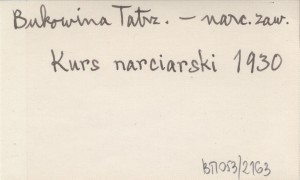 Bukowina Tatrz. – narc. zaw.
Kurs narciarski 1930
BП053/2163